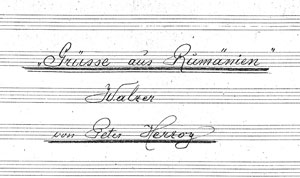 „Grüsse aus Rumänien"
Walzer
von Peter Herzog